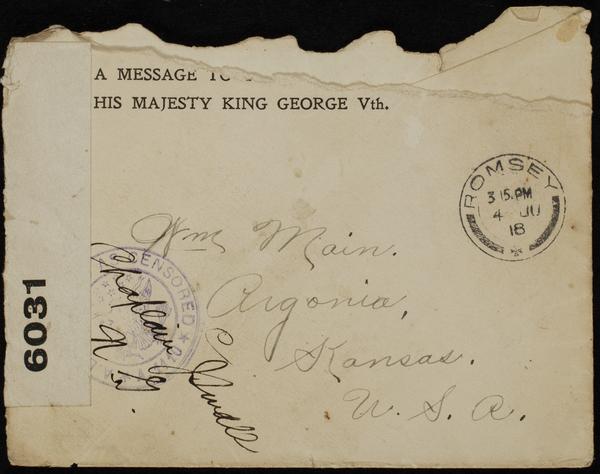 A MESSAGE TO
HIS MAJESTY KING GEORGE Vth.
ROMSEY
3 15. PM
4 JU
18
Wm Main.
Argonia,
Kansas.
U. S. A.
CENSORED
Chaplain
6031